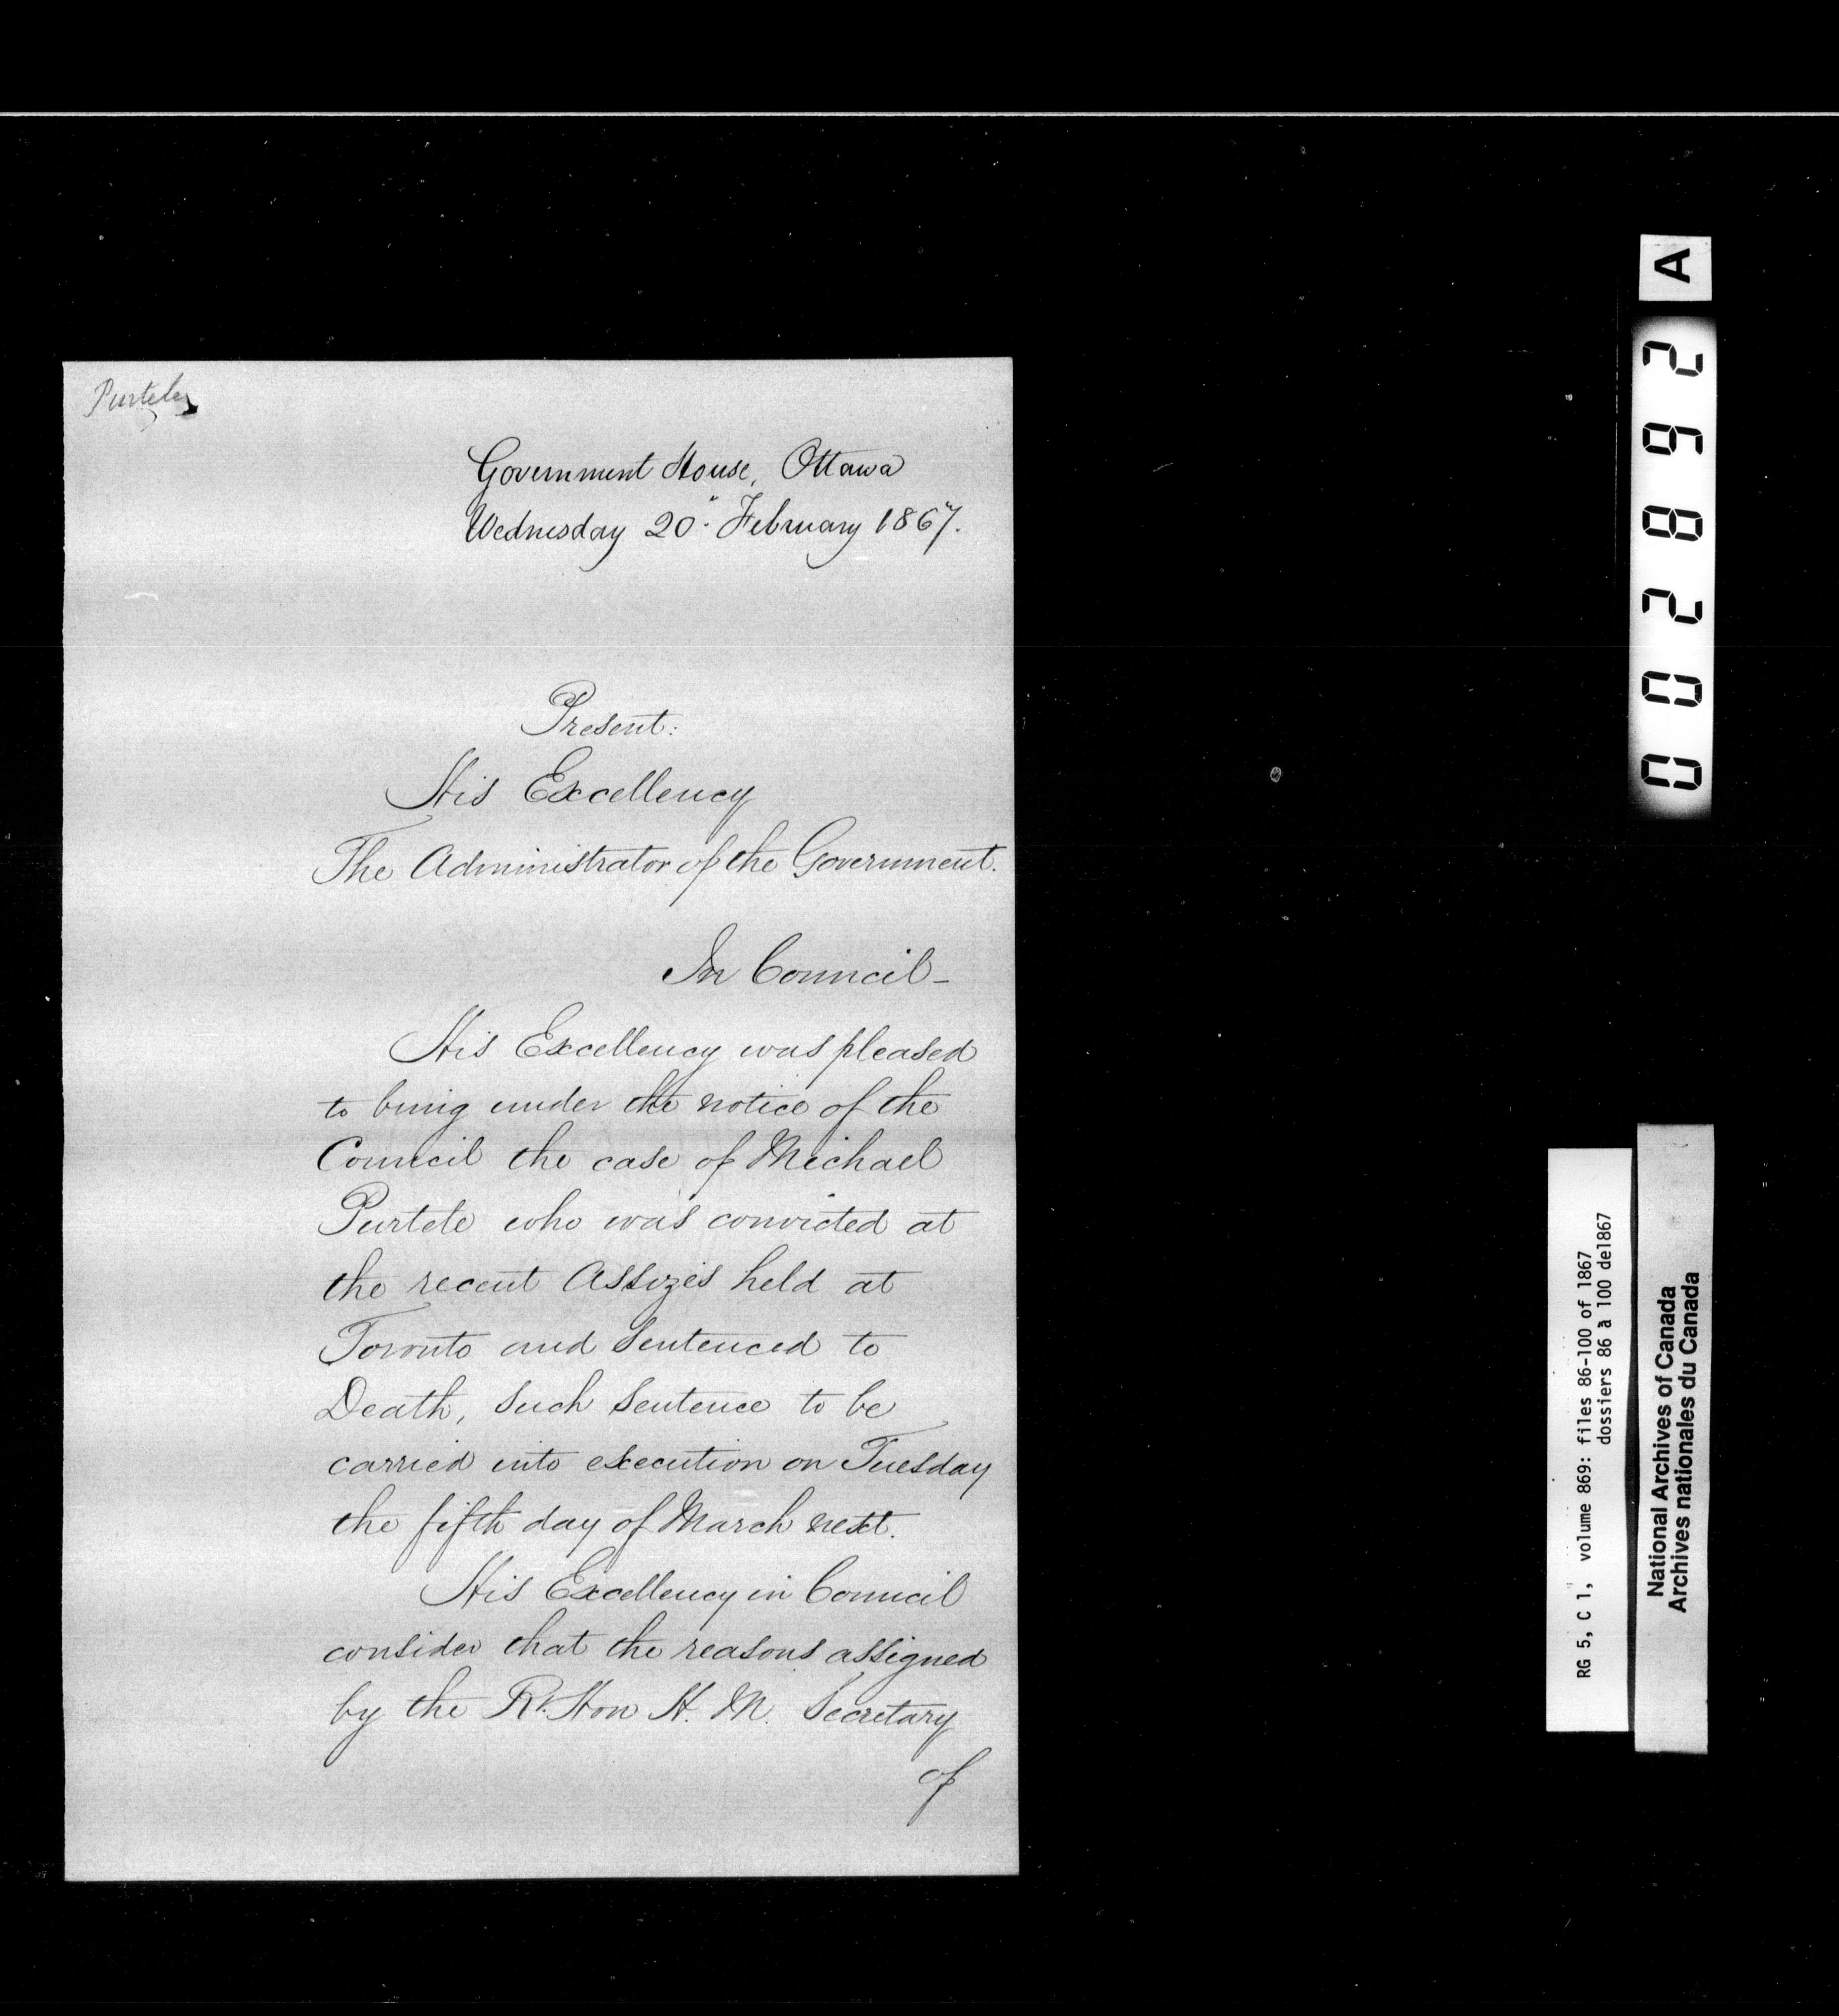 Purtele
Government House, Ottawa
Wednesday 20" February 1867.
Present:
His Excellency
The Administrator of the Government.
In Council -
His Excellency was pleased
to bring under the notice of the
Council the case of Michael
Purtele who was convicted at
the recent Assizes held at
Toronto and sentenced to
Death, such sentence to be
carried into execution on Tuesday
the fifth day of March next.
His Excellency in Council
consider that the reasons assigned
by the Rt. Hon H. M. Secretary
of
A
002892
RG 5, C 1, volume 869: files 86-100 of 1867
dossiers 86 à 100 de1867
National Archives of Canada
Archives nationales du Canada